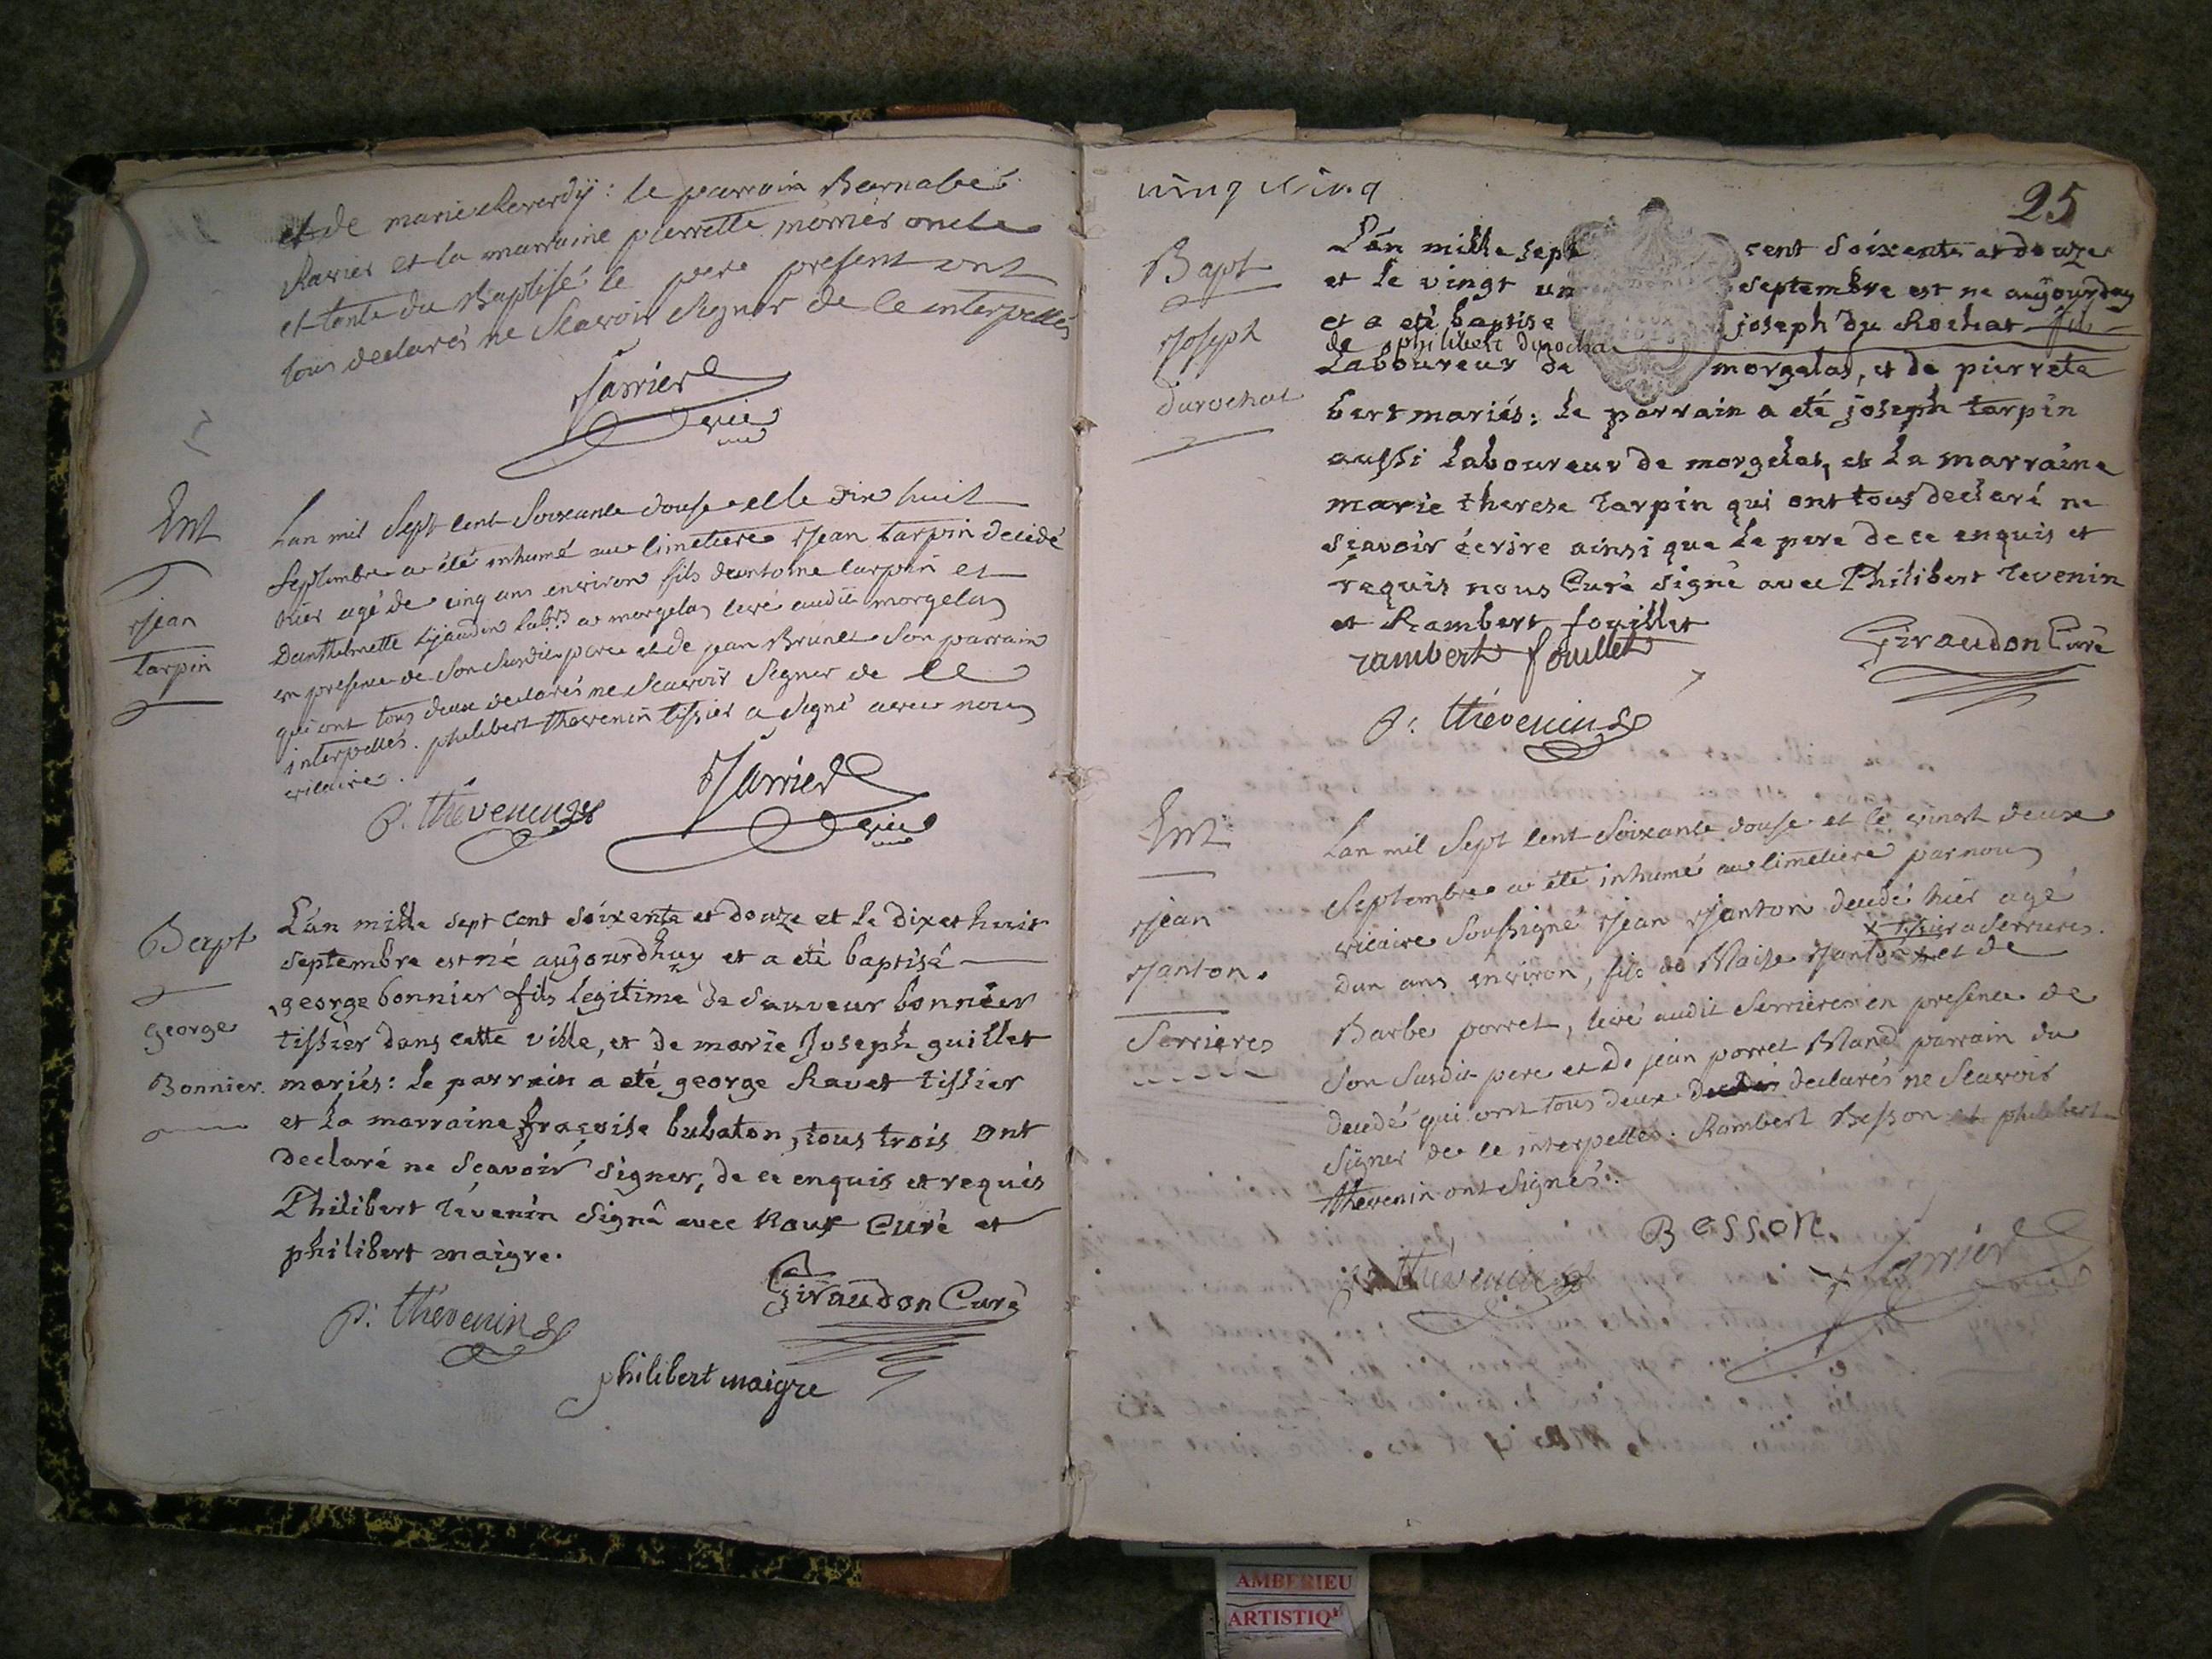 et de marie Reverdÿ : le parrain Barnabé
Ravier et la marraine pierrette mornier oncle
et tante du Baptisé le pere present ont
tous declarés ne Scavoir Signer de ce interpellés
Jarrier
vic
Ent
jean
tarpin
Lan mil Sept cent Soixante douse et le dix huit
Septembre a été inhumé au cimetiere jean tarpin decedé
hier agé de cinq ans environ fils dantoine tarpin et
Danthelmette Lyaudin labr a morgelas levé audit morgelas
en presence de Son Susdit pere et de jean Brunet Son parrain
qui ont tous deux declarés ne Scavoir Signer de ce
interpellés. philibert thevenin tissier a Signé avec nous
vicaire.
P. thévenin
Jarrier
vic
Bapt
george
Bonnier.
L'an mille sept cent soixente et douze et le dix et huit
septembre est né aujourdhuy et a eté baptisé
george bonnier fils legitime de sauveur bonnier
tissier dans cette ville, et de marie Joseph guillet
mariés: le parrain a eté george Ravet tissier
et la marraine fraçoise bubaton, tous trois ont
declaré ne sçavoir signer, de ce enquis et requis
Philibert Tévenin signé avec Nous Curé et
philibert maigre.
P: thévenin
Giraudon Curé
philibert maigre
vingt cinq
25
Bapt
Joseph
durochat
L'an mille sept cent soixente et douze
et le vingt un septembre est ne aujourdhuy
et a eté baptise joseph du Rochat fils
de philibert durochat
Laboureur de morgelas, et de pierrete
bert mariés: le parrain a eté joseph tarpin
aussi laboureur de morgelas, et la marraine
marie therese tarpin qui ont tous declaré ne
sçavoir écrire ainsi que le pere de ce enquis et
requis nous Curé signé avec Philibert Tevenin
et Rambert fouillet
rambert fouillet
Giraudon Curé
P: thévenin
Ent
jean
Janton.
Serrieres
Lan mil Sept cent Soixante douse et le vingt deux
Septembre a été inhumé au cimetiere par nous
vicaire Soussigné jean Janton decedé hier agé
x tissier a Serrieres.
dun ans environ, fils de Blaise Janton x et de
Barbe porret, levé audit Serrieres en presence de
Son Susdit pere et de jean porret Bland parrain du
decedé qui ont tous deux declarés ne Scavoir
Signer de ce interpellés. Rambert Besson et philibert
thevenin ont Signés.
Besson.
P. thévenin
Jarrier
vic
AMBERIEU
ARTISTIQ